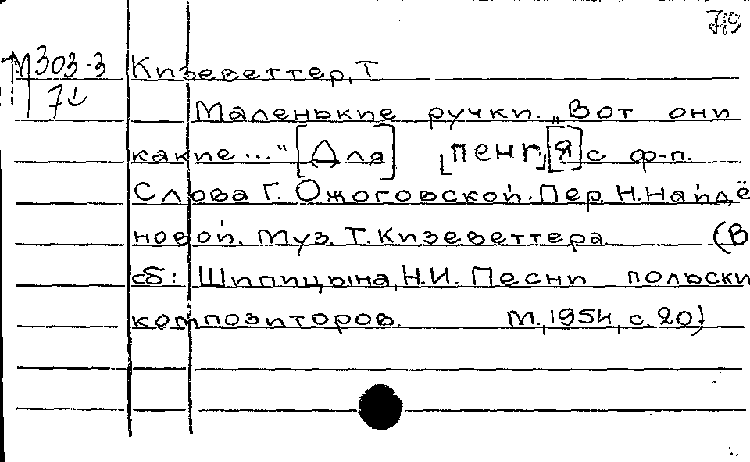 719
М303-3 Кизеветтер, Т
Маленькие ручки. „Вот они
какие..." [Для] [пен[я] с ф-п.
Слова Г. Ожоговской. Пер. Н. Найдё
новой. Муз. Т. Кизеветтера (В
сб: Шипицына, Н.И. Песни польски
композиторов. М., 1954, с. 20)